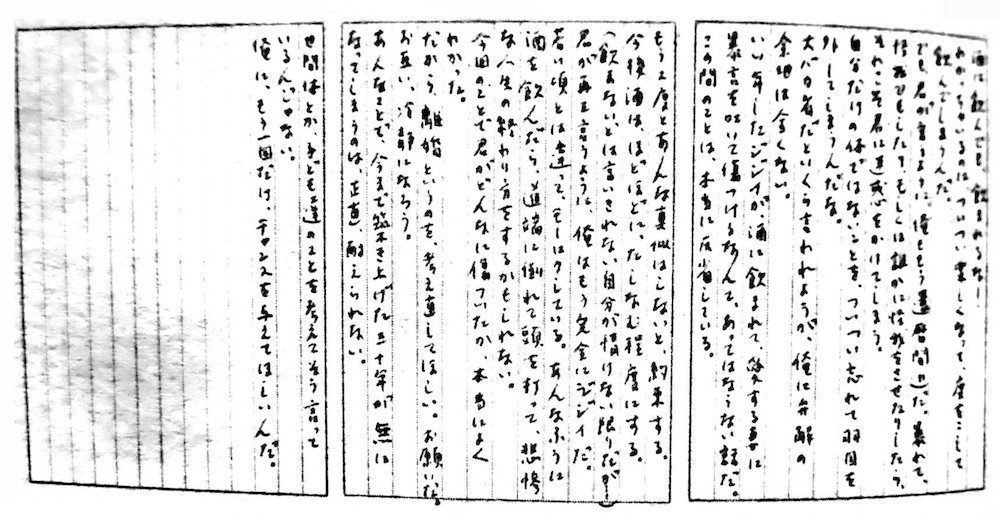 酒は飲んでも、飲まれるな!
わかっちゃいるのに、ついつい楽しくなって、度をこして
飲んでしまうんだ。
でも、君が言うように、俺ももう還暦間近だ。暴れて、
怪我でもしたり、もしくは誰かに怪我をさせたりしたら、
それこそ君に迷惑をかけてしまう。
自分だけの体ではないことを、ついつい忘れて羽目を
外してしまうんだな。
大バカ者だといくら言われようが、俺に弁解の
余地は全くない。
いい年したジジイが、酒に飲まれて、愛する妻に
暴言を吐いて傷つけるなんて、あってはならない話だ。
この間のことは、本当に反省している。
もう2度とあんな真似はしないと、約束する。
今後酒は、ほどほどに、たしなむ程度にする。
(飲まないとは言いきれない自分が情けない限りだが)
君が再三言うように、俺はもう完全にジジイだ。
若い頃とは違って、もーろくしている。あんなふうに
酒を飲んだら、道端に倒れて頭を打って、悲惨
な人生の終わり方をするかもしれない。
今回のことで君がどんなに傷ついたか、本当によく
わかった。
だから、離婚というのを、考え直してほしい。お願いだ。
お互い、冷静になろう。
あんなことで、今まで築き上げた三十年が無に
なってしまうのは、正直、耐えられない。
世間体とか、子ども達のことを考えてそう言って
いるんじゃない。
俺に、もう一回だけ、チャンスを与えてほしいんだ。